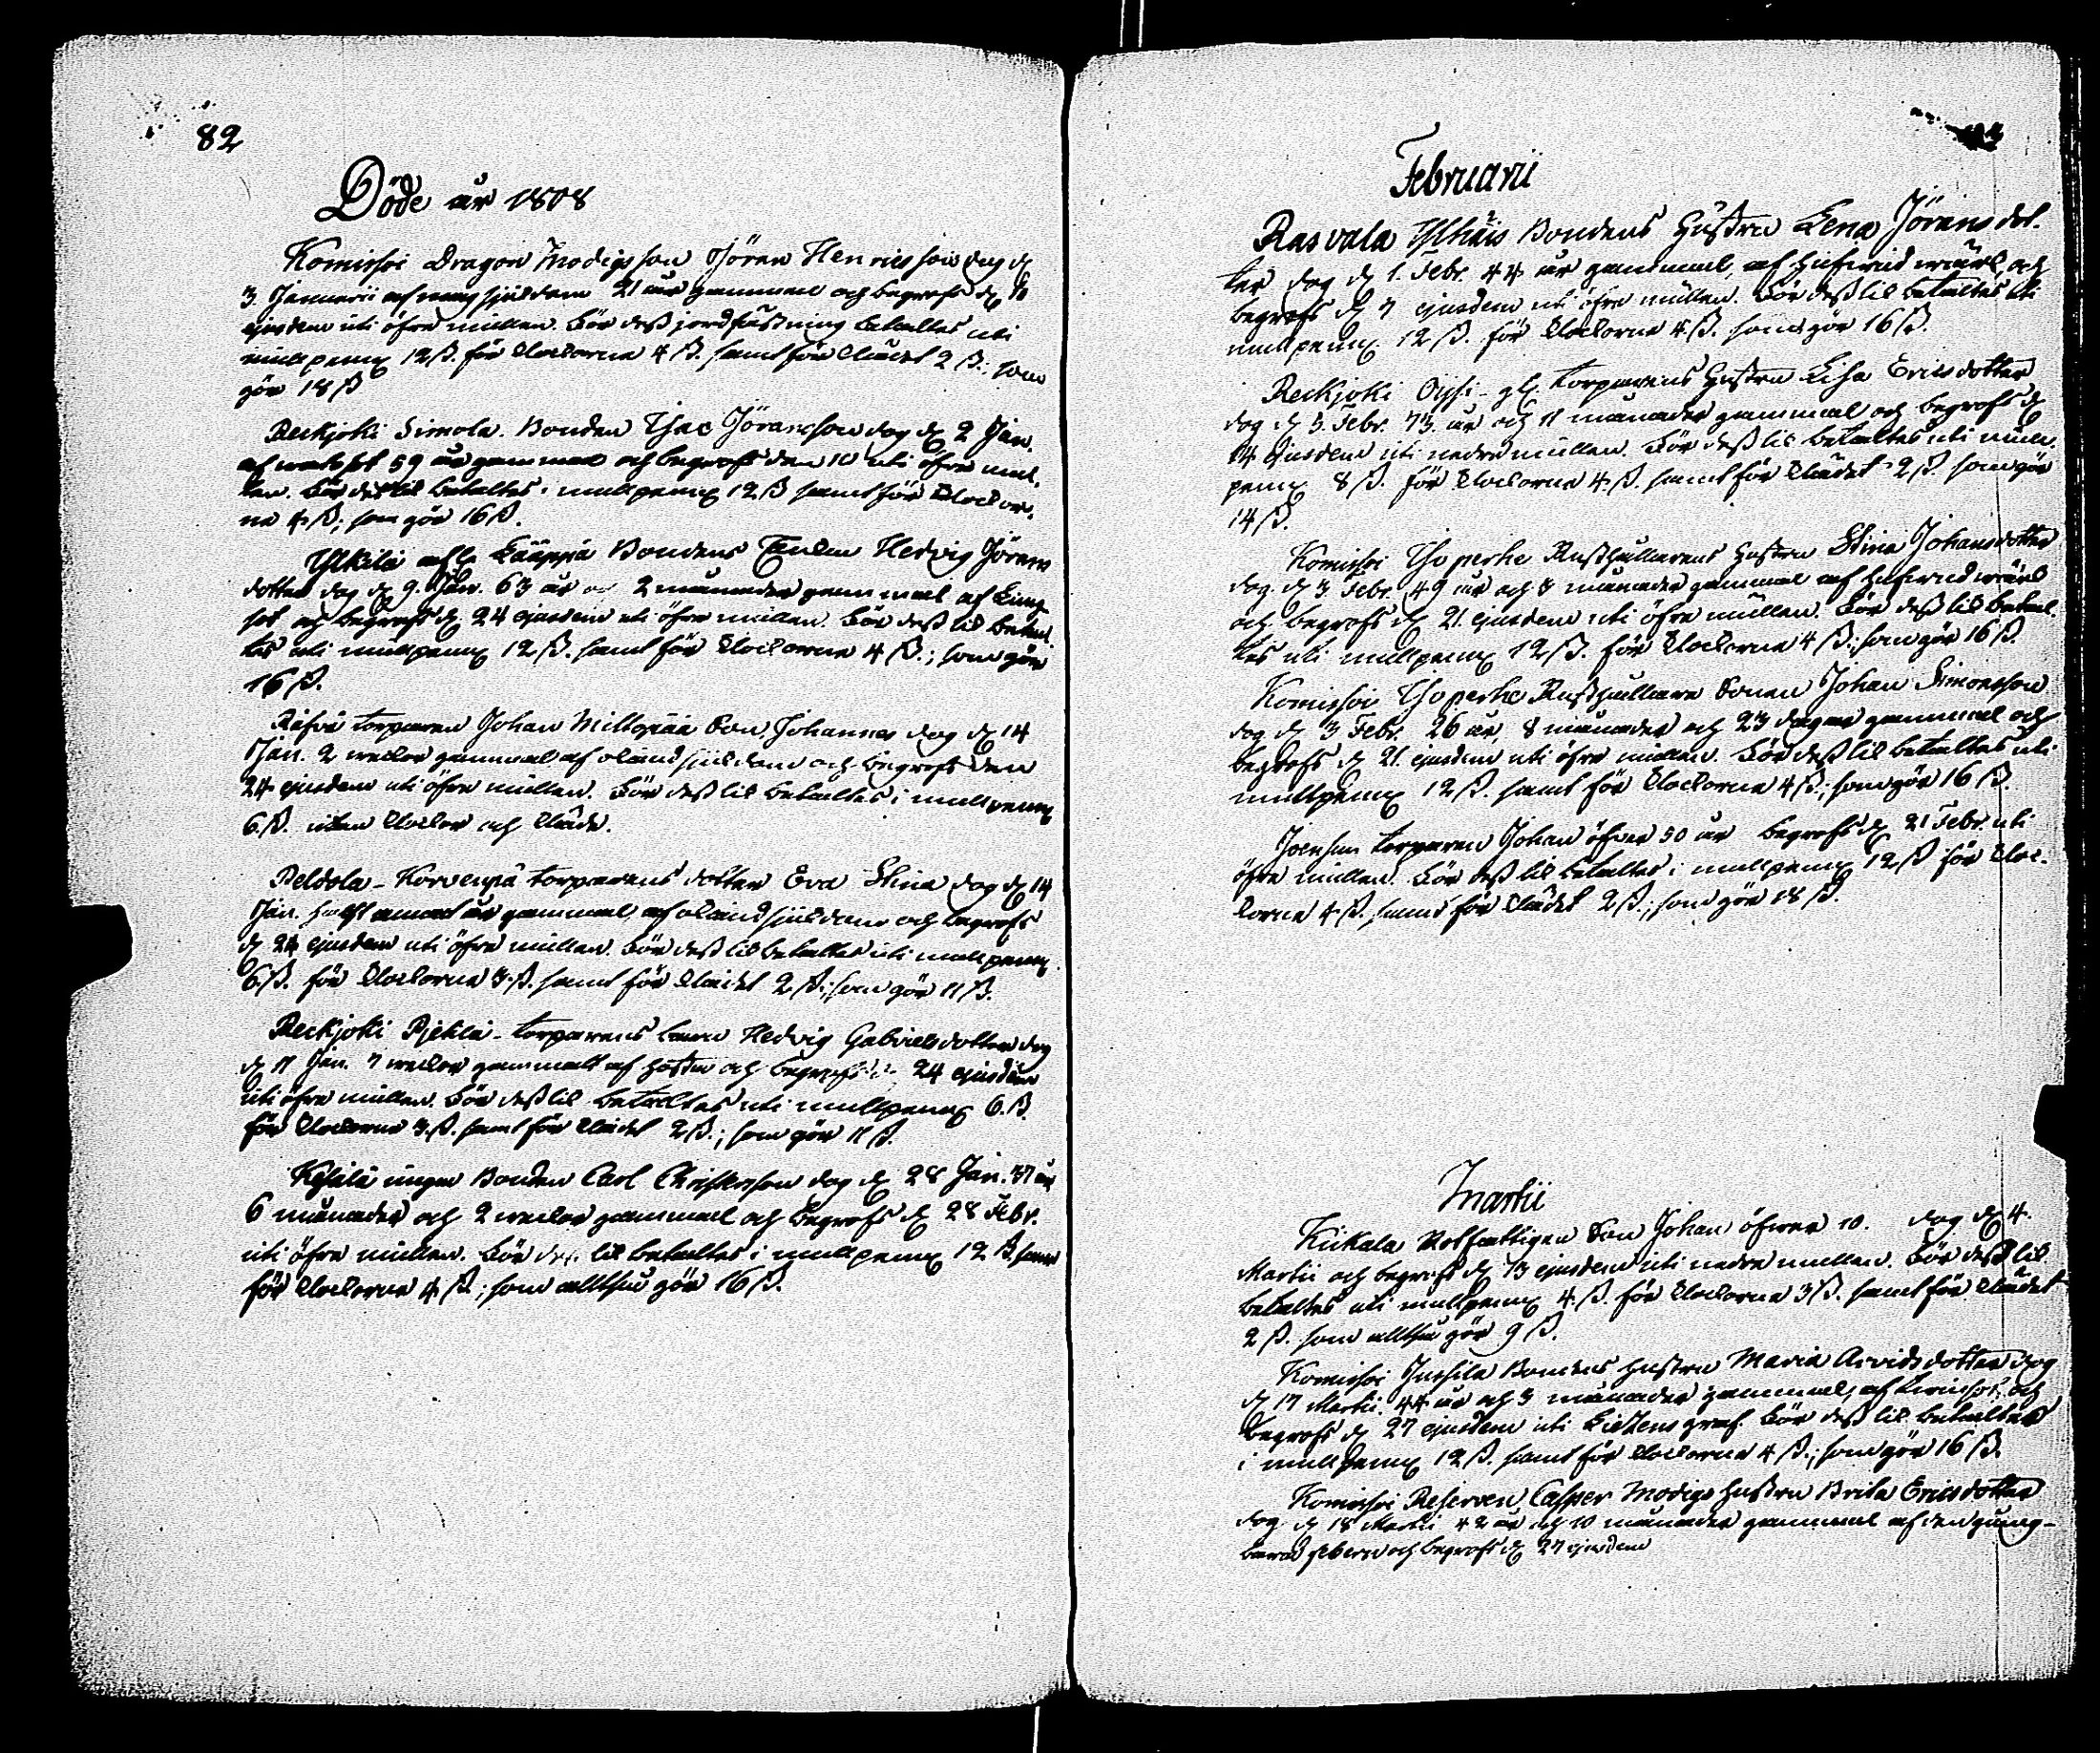 82
Döde år 1808
Komissoi Dragon Modigs son Jöran Henricsson dog d
3 Januarii af mag sjukdom 21 år gammal och begrofs d 10
ejusdem uti öfre mullen. För dess jordfästning betaltes uti
mullpenng 12 ß. för klockorna 4 ß. samt för klädet 2 ß.; som
gör 18 ß
Reckjoki Simola Bonden Isac Jöransson dog d 2 Jan.
af 59 år gammal och begrofs den 10 uti öfre mul-
len. För dess lik betaltes i mullpenng 12 ß samt för klockor-
na 4 ß; som gör 16 ß.
Yllkilä Bondens Enkan Hedvig Jörans
dotter dog d 9. Jan. 63 år oc 2 månader gammal af Lung-
sot och begrofs d. 24 ejusdem uti öfre mullen. För dess lik betal-
tes uti mullpenng 12 ß. samt för klockorna 4 ß.; som gör
16 ß.
torparen Johan Millopää Son Johannes dog d 14
Jan. 2 veckor gammal af okänd sjukdom och begrofs den
24 ejusdem uti öfre mullen. För dess lik betaltes i mullpenng
6. ß. utan klockor och kläde.
Peldola - Korvenpä torparens dotter Eva Stina dog d 14
Jan. halft annat år gammal af okänd sjukdom och begrofs
d 24 ejusdem uti öfre mullen. För dess lik betaltes uti mullpenng
6 ß. för klockorna 3. ß. samt för klädet 2 ß.; som gör 11 ß.
Reckjoki Pjekla - torparens barn Hedvig Gabrielsdotter dog
d 17 Jan. 7 veckor gammalt af hosta och begrofs d 24 ejusdem
uti öfre mullen. För dess lik betaltes uti mullpenng 6. ß.
för klockorna 3. ß. samt för klädet 2 ß.; som gör 11 ß.
Kesälä unga Bonden Carl Christersson dog d 28 Jan. 37 år
6 månader och 2 veckor gammal och begrofs d 28 Febr.
uti öfre mullen. För dess lik betaltes i mullpenng 12 ß. samt
för klockorna 4 ß.; som alltså gör 16 ß.
Februarii
Rasvala Bondens Hustru Lena Jöransdot-
ter dog d 1. Febr. 44 år gammal, af hufvud wärk, och
begrofs d 7 ejusdem uti öfre mullen. För dess lik betaltes uti
mullpenng 12 ß. för klockorna 4. ß. som gör 16 ß.
Reckjoki torparens Hustru Lisa Ericsdotter
dog d 3. Febr. 73 år och 11 månader gammal och begrofs d
14 Ejusdem uti nedre mullen. För dess lik betaltes uti mull-
penng 8 ß. för klockorna 4. ß. samt för klädet 2 ß. som gör
14 ß.
Komissoi Iso perhe Rusthållarens Hustru Stina Johansdotter
dog d 3 Febr. 49 år och 8 månader gammal af hufvud wärk
och begrofs d 21. ejusdem uti öfre mullen. För dess lik betal-
tes uti mullpenng 12 ß. för klockorna 4 ß.; som gör 16 ß.
Komissoi Iso perhe Rusthållare Sonen Johan Simonsson
dog d 3 Febr. 26 år, 8 månader och 23 dagar gammal och
begrofs d 21. ejusdem uti öfre mullen. För dess lik betaltes uti
mullpenng 12 ß. samt för klockorna 4 ß.; som gör 16 ß.
Joensuu torparen Johan öfver 50 år begrofs d 21 Febr. uti
öfre mullen. För dess lik betaltes i mullpenng 12 ß för kloc-
korna 4 ß. samt för klädet 2 ß.; som gör 18 ß.
Martii
Kiikala Rotfattigen Son Johan öfver 10. dog d 4.
Martii och begrofs d 13 ejusdem uti nedre mullen. För dess lik
betaltes uti mullpenng 4. ß. för klockorna 3 ß. samt för klädet
2 ß. som alltså gör 9 ß.
Komissoi Jussila Bondens hustru Maria Arvidsdotter dog
d 17 Martii. 44 år och 3 månader gammal, af och
begrofs d 27 ejusdem uti graf. För dess lik betaltes
i mullpenng 12 ß. samt för klockorna 4 ß.; som gör 16 ß.
Komissoi Reserven Casper Modigs hustru Brita Ericsdotter
dog d 18 Martii 42 år och 10 månader gammal af den gång-
bara febern och begrofs d 27 ejusdem